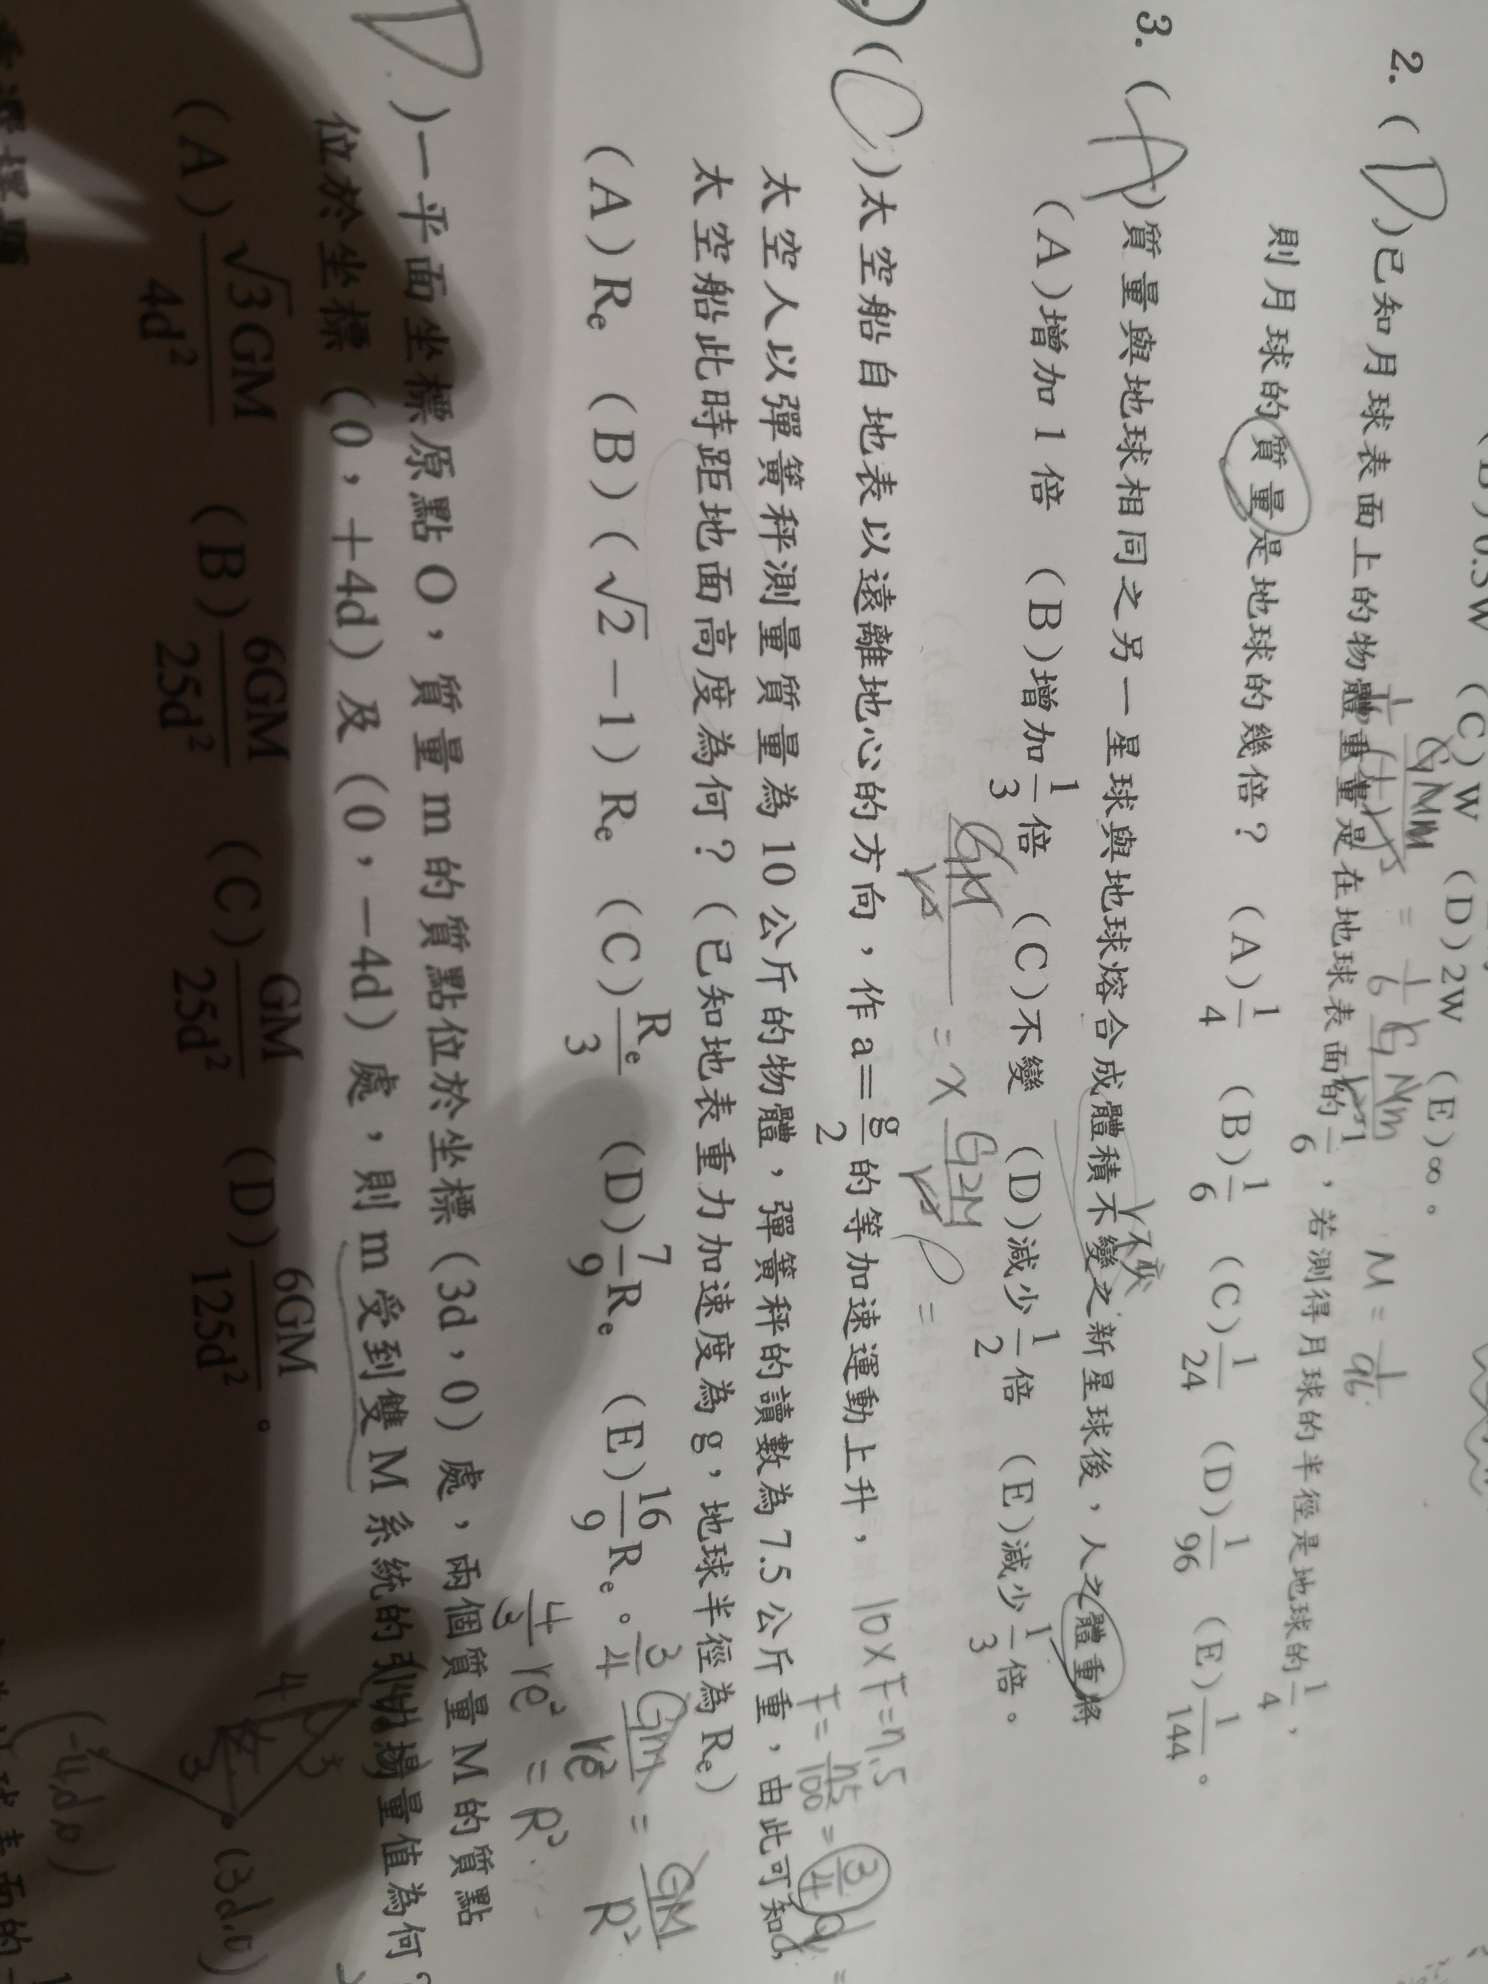 (C)W (D)2W (E)∞。
2.(D)已知月球表面上的物體重量是在地球表面的1/6,若測得月球的半徑是地球的1/4,
則月球的質量是地球的幾倍? (A)1/4 (B)1/6 (C)1/24 (D)1/96 (E)1/144。
M=1/96
3.(A)質量與地球相同之另一星球與地球熔合成體積不變之新星球後,人之體重將
(A)增加1倍 (B)增加1/3倍 (C)不變 (D)減少1/2倍 (E)減少1/3倍。
(C)太空船自地表以遠離地心的方向,作a=g/2的等加速運動上升,
太空人以彈簧秤測量質量為10公斤的物體,彈簧秤的讀數為7.5公斤重,由此可知,
太空船此時距地面高度為何?(已知地表重力加速度為g,地球半徑為Re)
(A)Re (B)(√2-1)Re (C)Re/3 (D)7/9Re (E)16/9Re。
3/4 GM/re² = GM/R²
4/3 re² = R²
D)一平面坐標原點O,質量m的質點位於坐標(3d,0)處,兩個質量M的質點
位於坐標(0,+4d)及(0,-4d)處,則m受到雙M系統的引力場量值為何?
(A)√3GM/4d² (B)6GM/25d² (C)GM/25d² (D)6GM/125d²。
(3d,0)
(-4d,0)